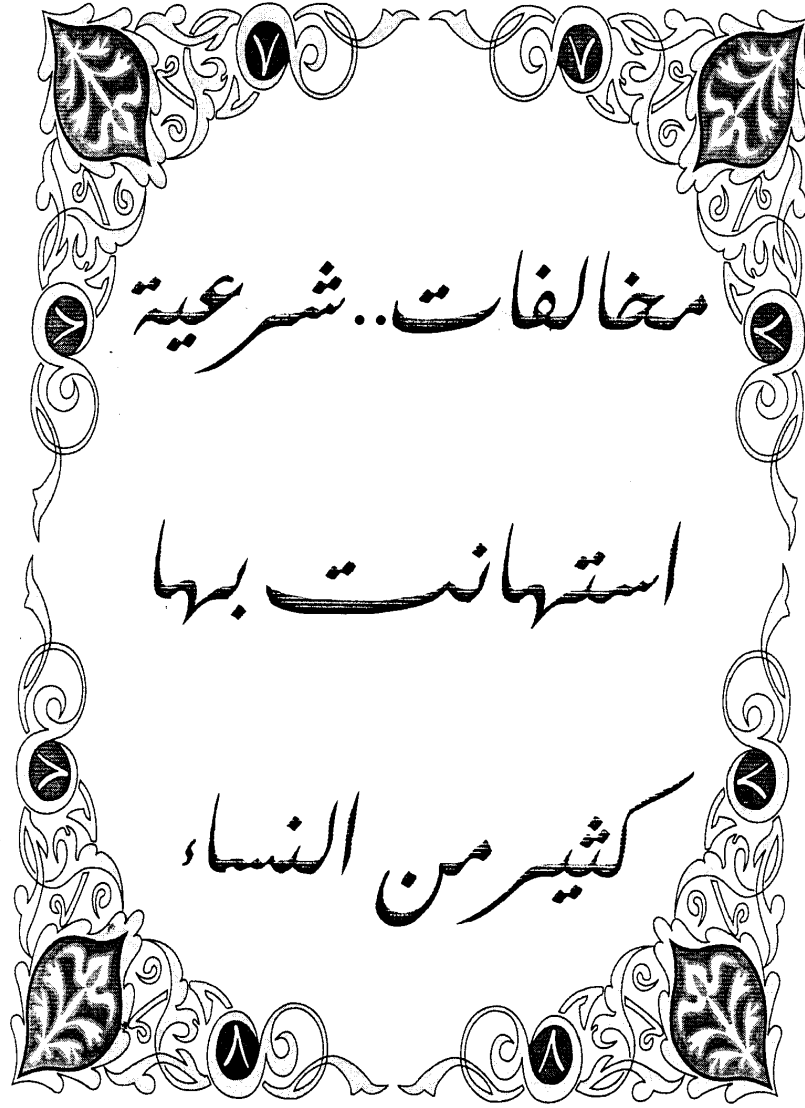 مخالفات..شرعية
استهانت بها
كثير من النساء